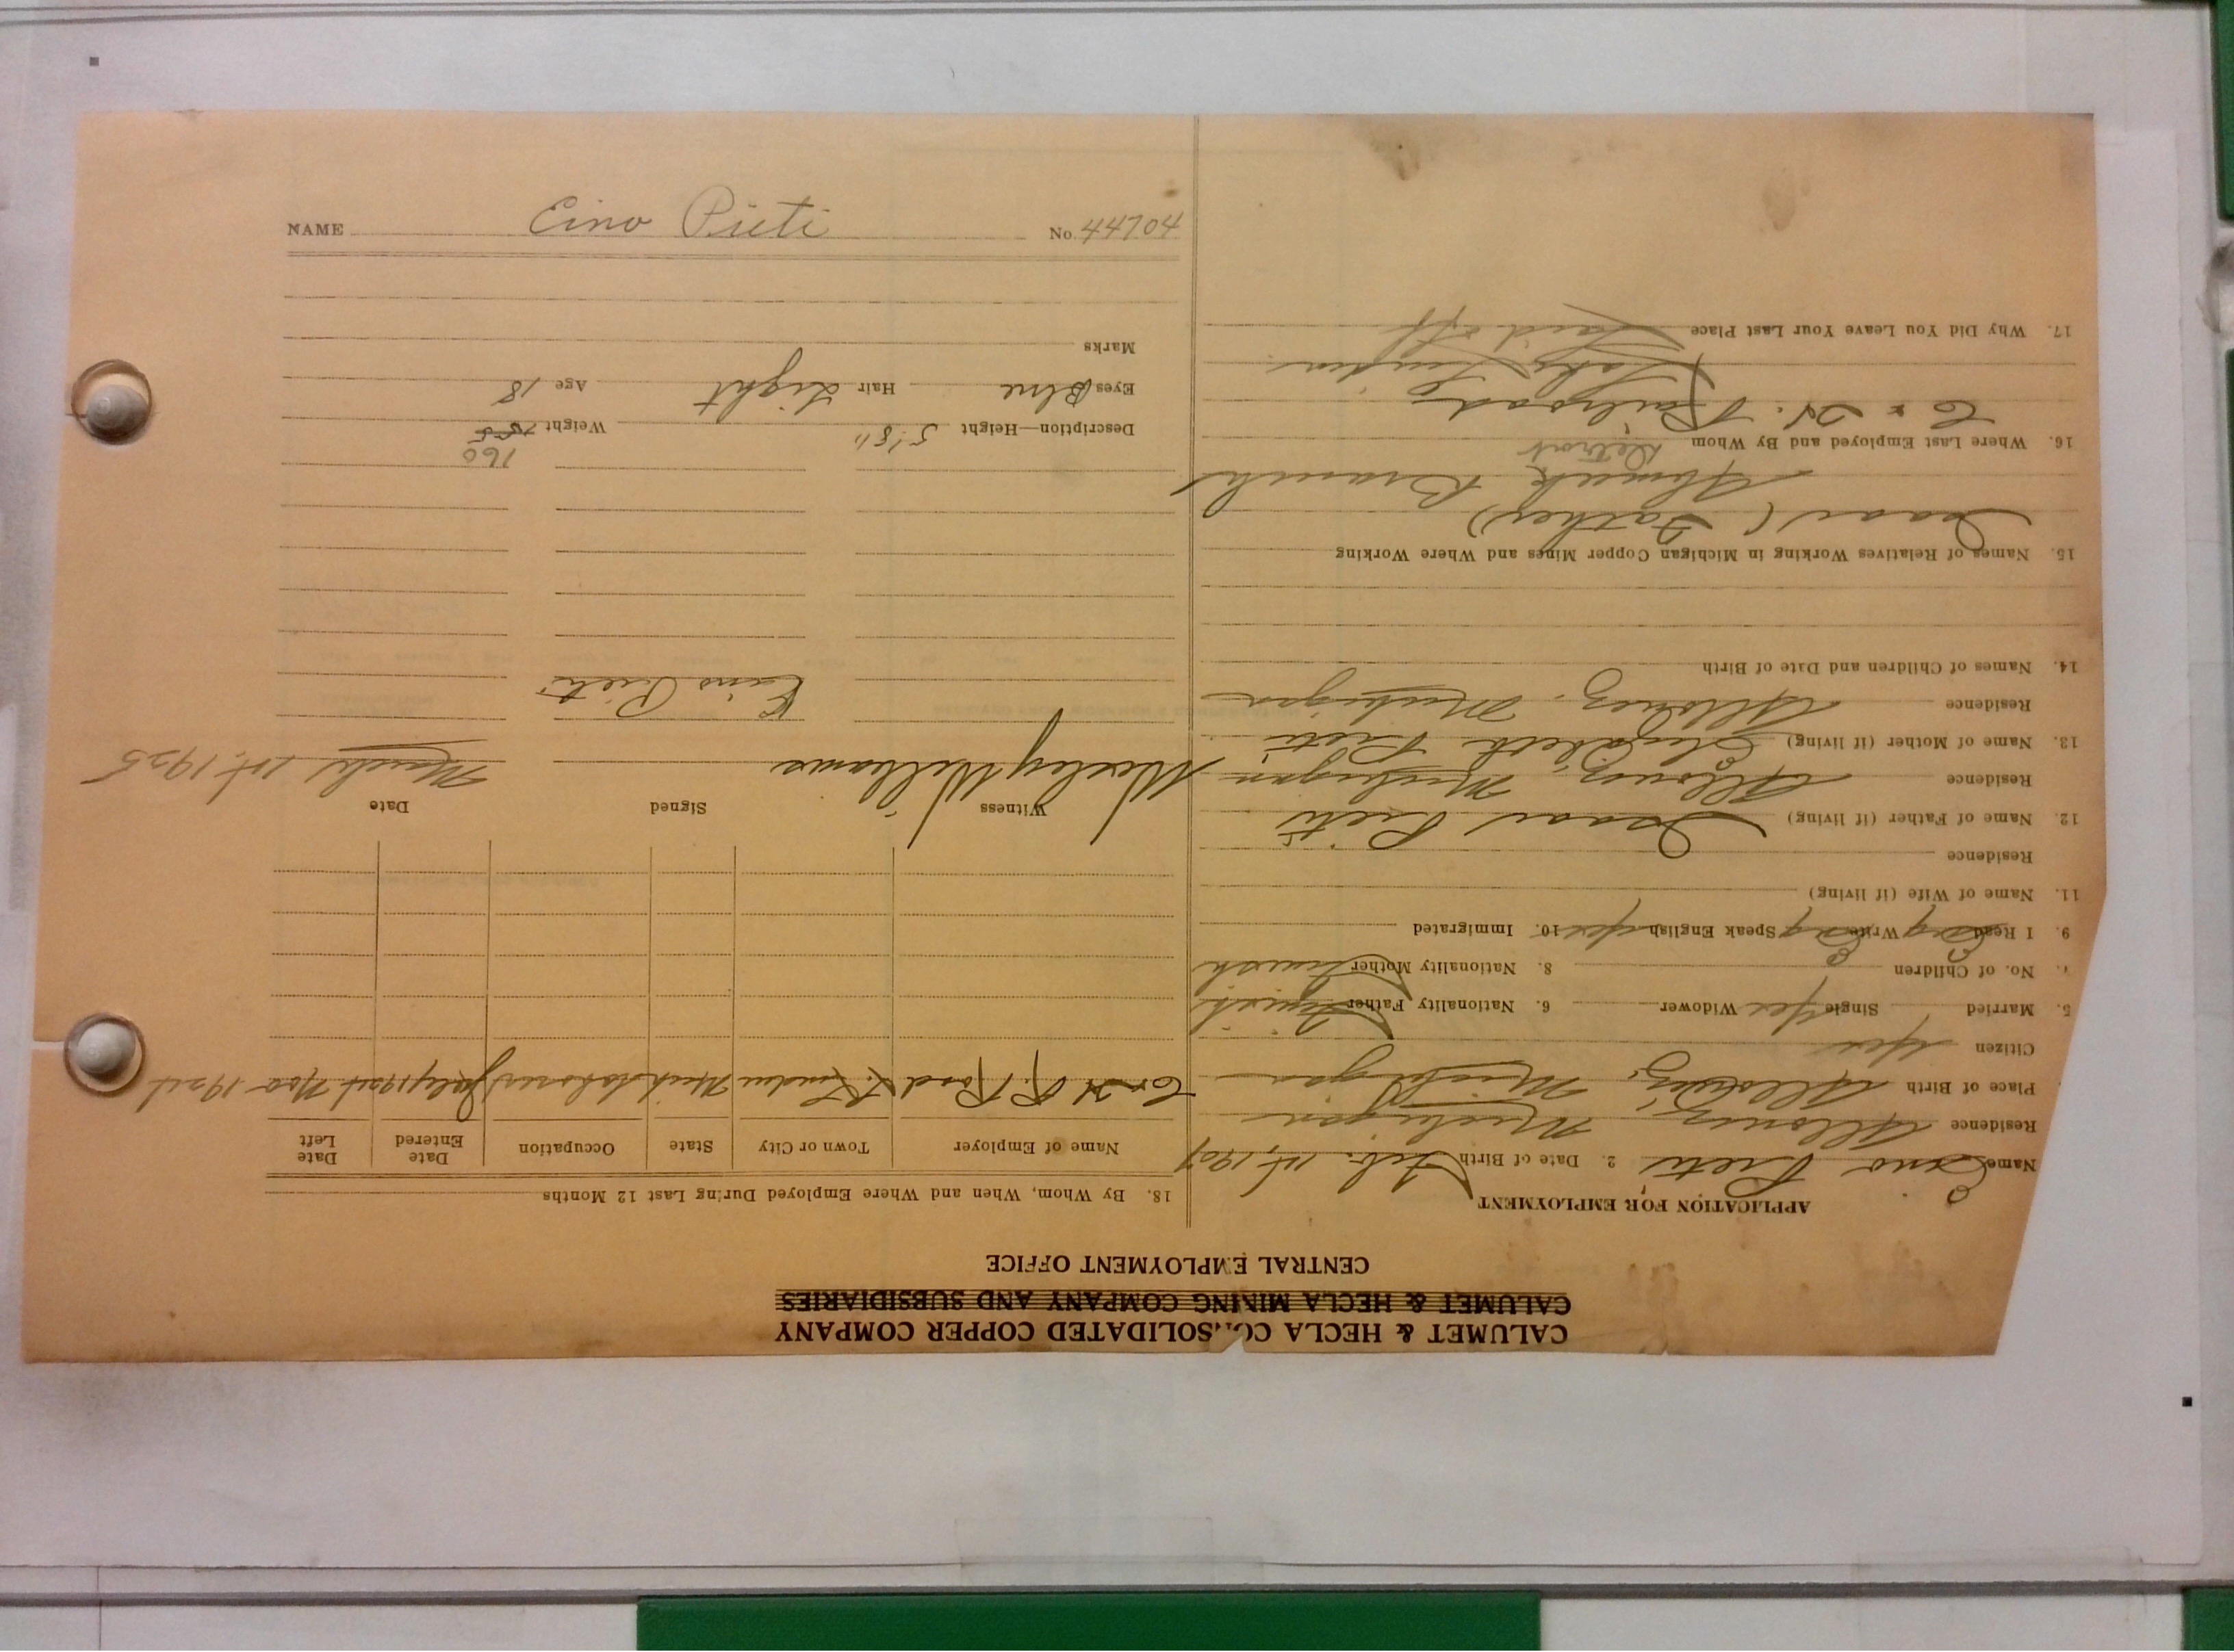 CALUMET & HECLA CONSOLIDATED COPPER COMPANY
CALUMET & HECLA MINING COMPANY AND SUBSIDIARIES
CENTRAL EMPLOYMENT OFFICE
APPLICATION FOR EMPLOYMENT
Name Eino Pieti 2. Date of Birth Feb. 1st, 1907
Residence Allouez, Michigan
Place of Birth Allouez, Michigan
Citizen Yes
5. Married Single Yes Widower 6. Nationality Father Finnish
No. of Children 8. Nationality Mother Finnish
9. I Read Eng Write Eng Speak English Yes 10. Immigrated
11. Name of Wife (if living)
Residence
12. Name of Father (if living) Isaac Pieti
Residence Allouez, Michigan
13. Name of Mother (if living) Elizabeth Pieti
Residence Allouez, Michigan
14. Names of Children and Date of Birth
15. Names of Relatives Working in Michigan Copper Mines and Where Working
Isaac (Father)
Ahmeek Branch
16. Where Last Employed and By Whom Detroit
C & N. Railroad
Lake Linden
17. Why Did You Leave Your Last Place Laid off
18. By Whom, When and Where Employed During Last 12 Months
Name of Employer Town or City State Occupation Date Entered Date Left
C & N R. Road L. Linden Mich Laborer July 1924 Nov 1924
Witness Signed Date
Wesley Williams March 1st, 1925
Eino Pieti
160
Description—Height 5' 8" Weight 155
Eyes Blue Hair Light Age 18
Marks
NAME Eino Pieti No. 44704